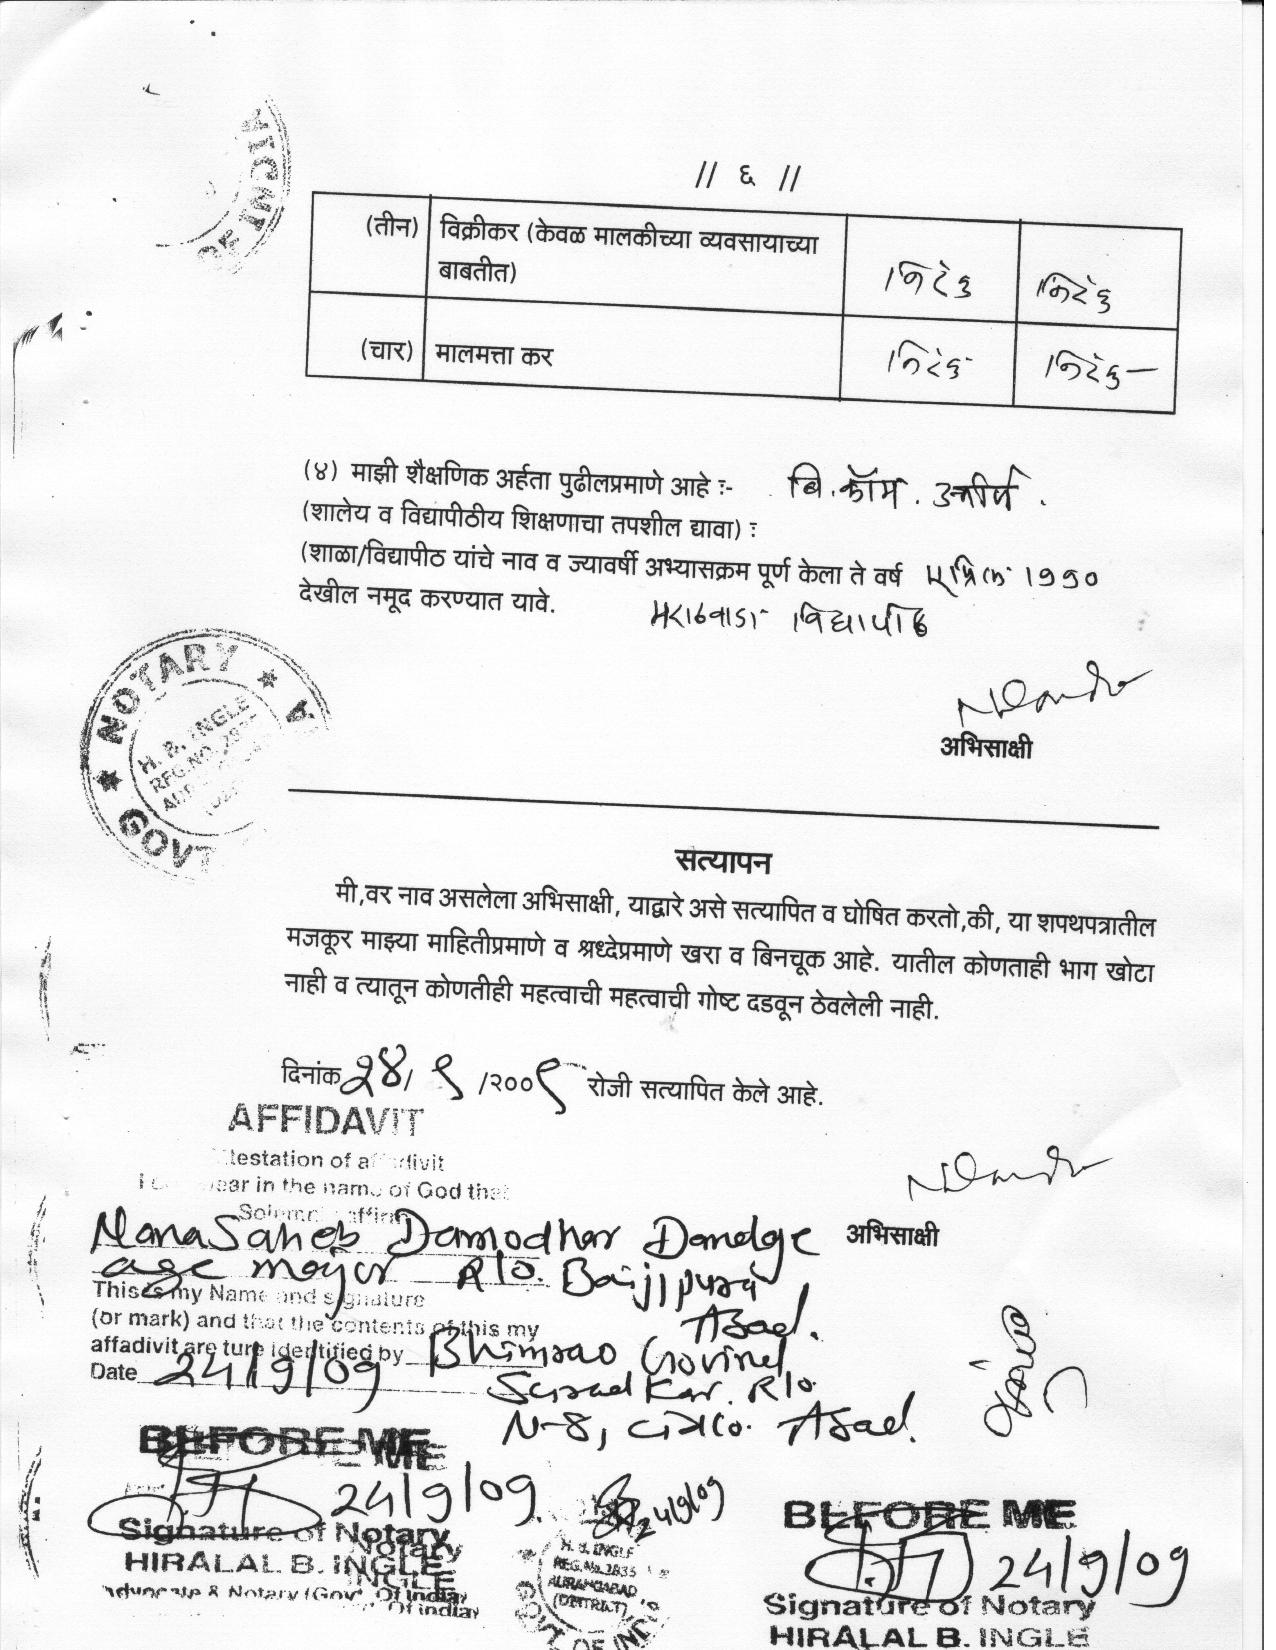 // ६ //
(तीन) विक्रीकर (केवळ मालकीच्या व्यवसायाच्या
बाबतीत) निरंक निरंक
(चार) मालमत्ता कर निरंक निरंक
(४) माझी शैक्षणिक अर्हता पुढीलप्रमाणे आहे :- बि.कॉम. उत्तीर्ण.
(शालेय व विद्यापीठीय शिक्षणाचा तपशील द्यावा) :
(शाळा/विद्यापीठ यांचे नाव व ज्यावर्षी अभ्यासक्रम पूर्ण केला ते वर्ष एप्रिल १९९०
देखील नमूद करण्यात यावे. मराठवाडा विद्यापीठ
NOTARY
H. B. INGLE
GOVT
अभिसाक्षी
सत्यापन
मी,वर नाव असलेला अभिसाक्षी, याद्वारे असे सत्यापित व घोषित करतो,की, या शपथपत्रातील
मजकूर माझ्या माहितीप्रमाणे व श्रध्देप्रमाणे खरा व बिनचूक आहे. यातील कोणताही भाग खोटा
नाही व त्यातून कोणतीही महत्वाची महत्वाची गोष्ट दडवून ठेवलेली नाही.
दिनांक २४/ ९ /२००९ रोजी सत्यापित केले आहे.
AFFIDAVIT
of
in the name of God that
NanaSaheb Damodhar Dandge
अभिसाक्षी
age major R/o. Baijipura
This is my Name and signature
A'bad.
(or mark) and that the contents of this my
affadivit are ture identified by Bhimrao Govind
Date 24/9/09
Suradkar. R/o.
N-8, Cidco. A'bad.
BEFORE ME
24/9/09
24/9/09
Signature of Notary
HIRALAL B. INGLE
Advocate & Notary (Govt. Of India)
H. B. INGLE
REG.No.2835
AURANGABAD
(DISTRICT)
GOVT. OF IND
BEFORE ME
24/9/09
Signature of Notary
HIRALAL B. INGLE